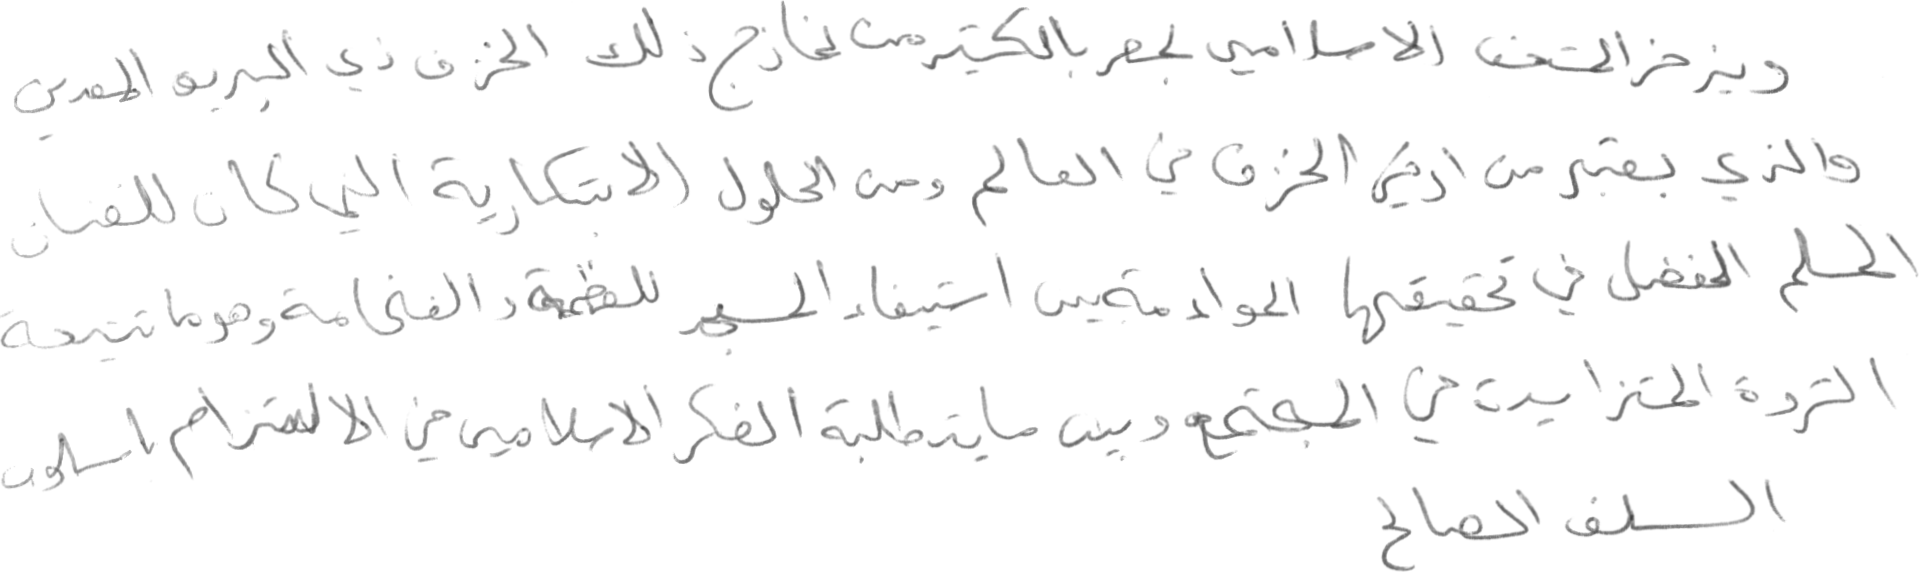 ويزخر المتحف الاسلامي بمصر بالكثير من نماذج ذلك الخزف ذي البريق المعدني
والذي يعتبر من ارقى الخزف في العالم ومن الحلول الابتكارية التي كان للفنان
المسلم الفضل في تحقيقها المواءمة بين استيفاء المسجد للفخمة والفخامة وهو ما نتيجة
الثروة المتزايدت في المجتمع وبين ما يتطلبة الفكر الاسلامي في الالتزام باسلوب
السلف الصالح